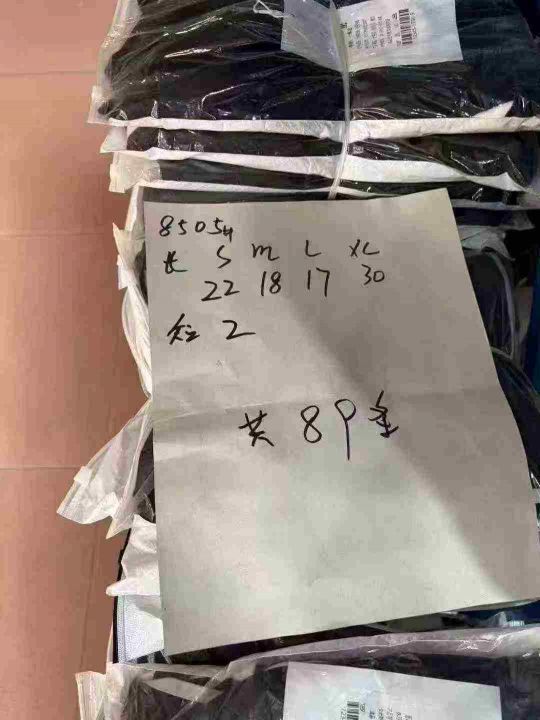 85054
长 S M L XL
22 18 17 30
短 2
共 89 条